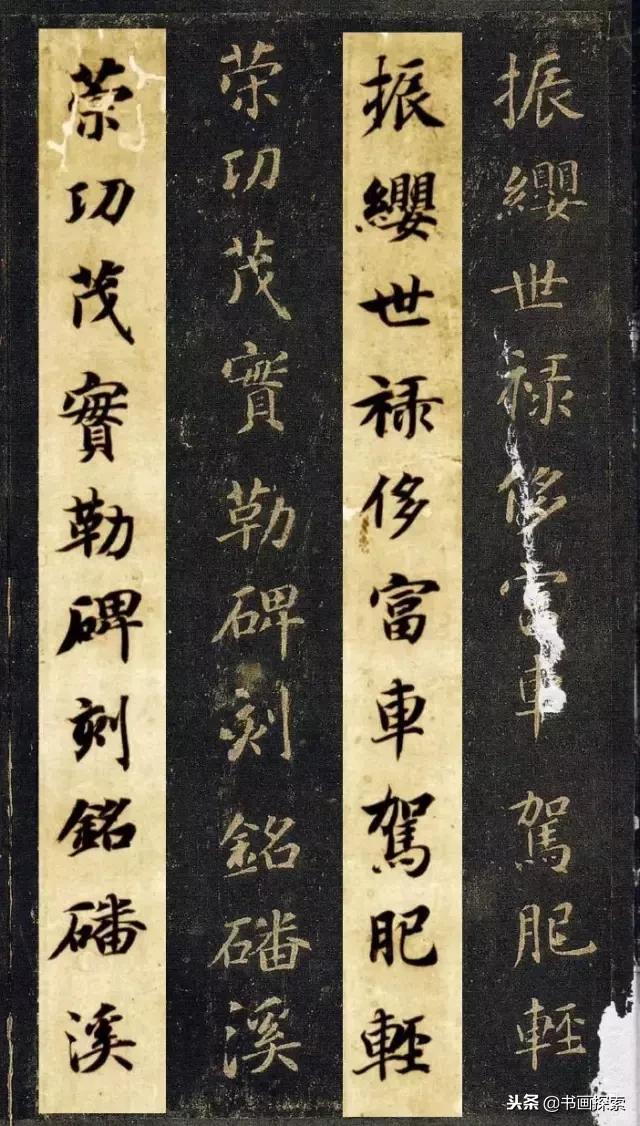 振纓世禄侈富車駕肥輕
振纓世禄侈富車駕肥輕
策功茂實勒碑刻銘磻溪
策功茂實勒碑刻銘磻溪
头条 @书画探索